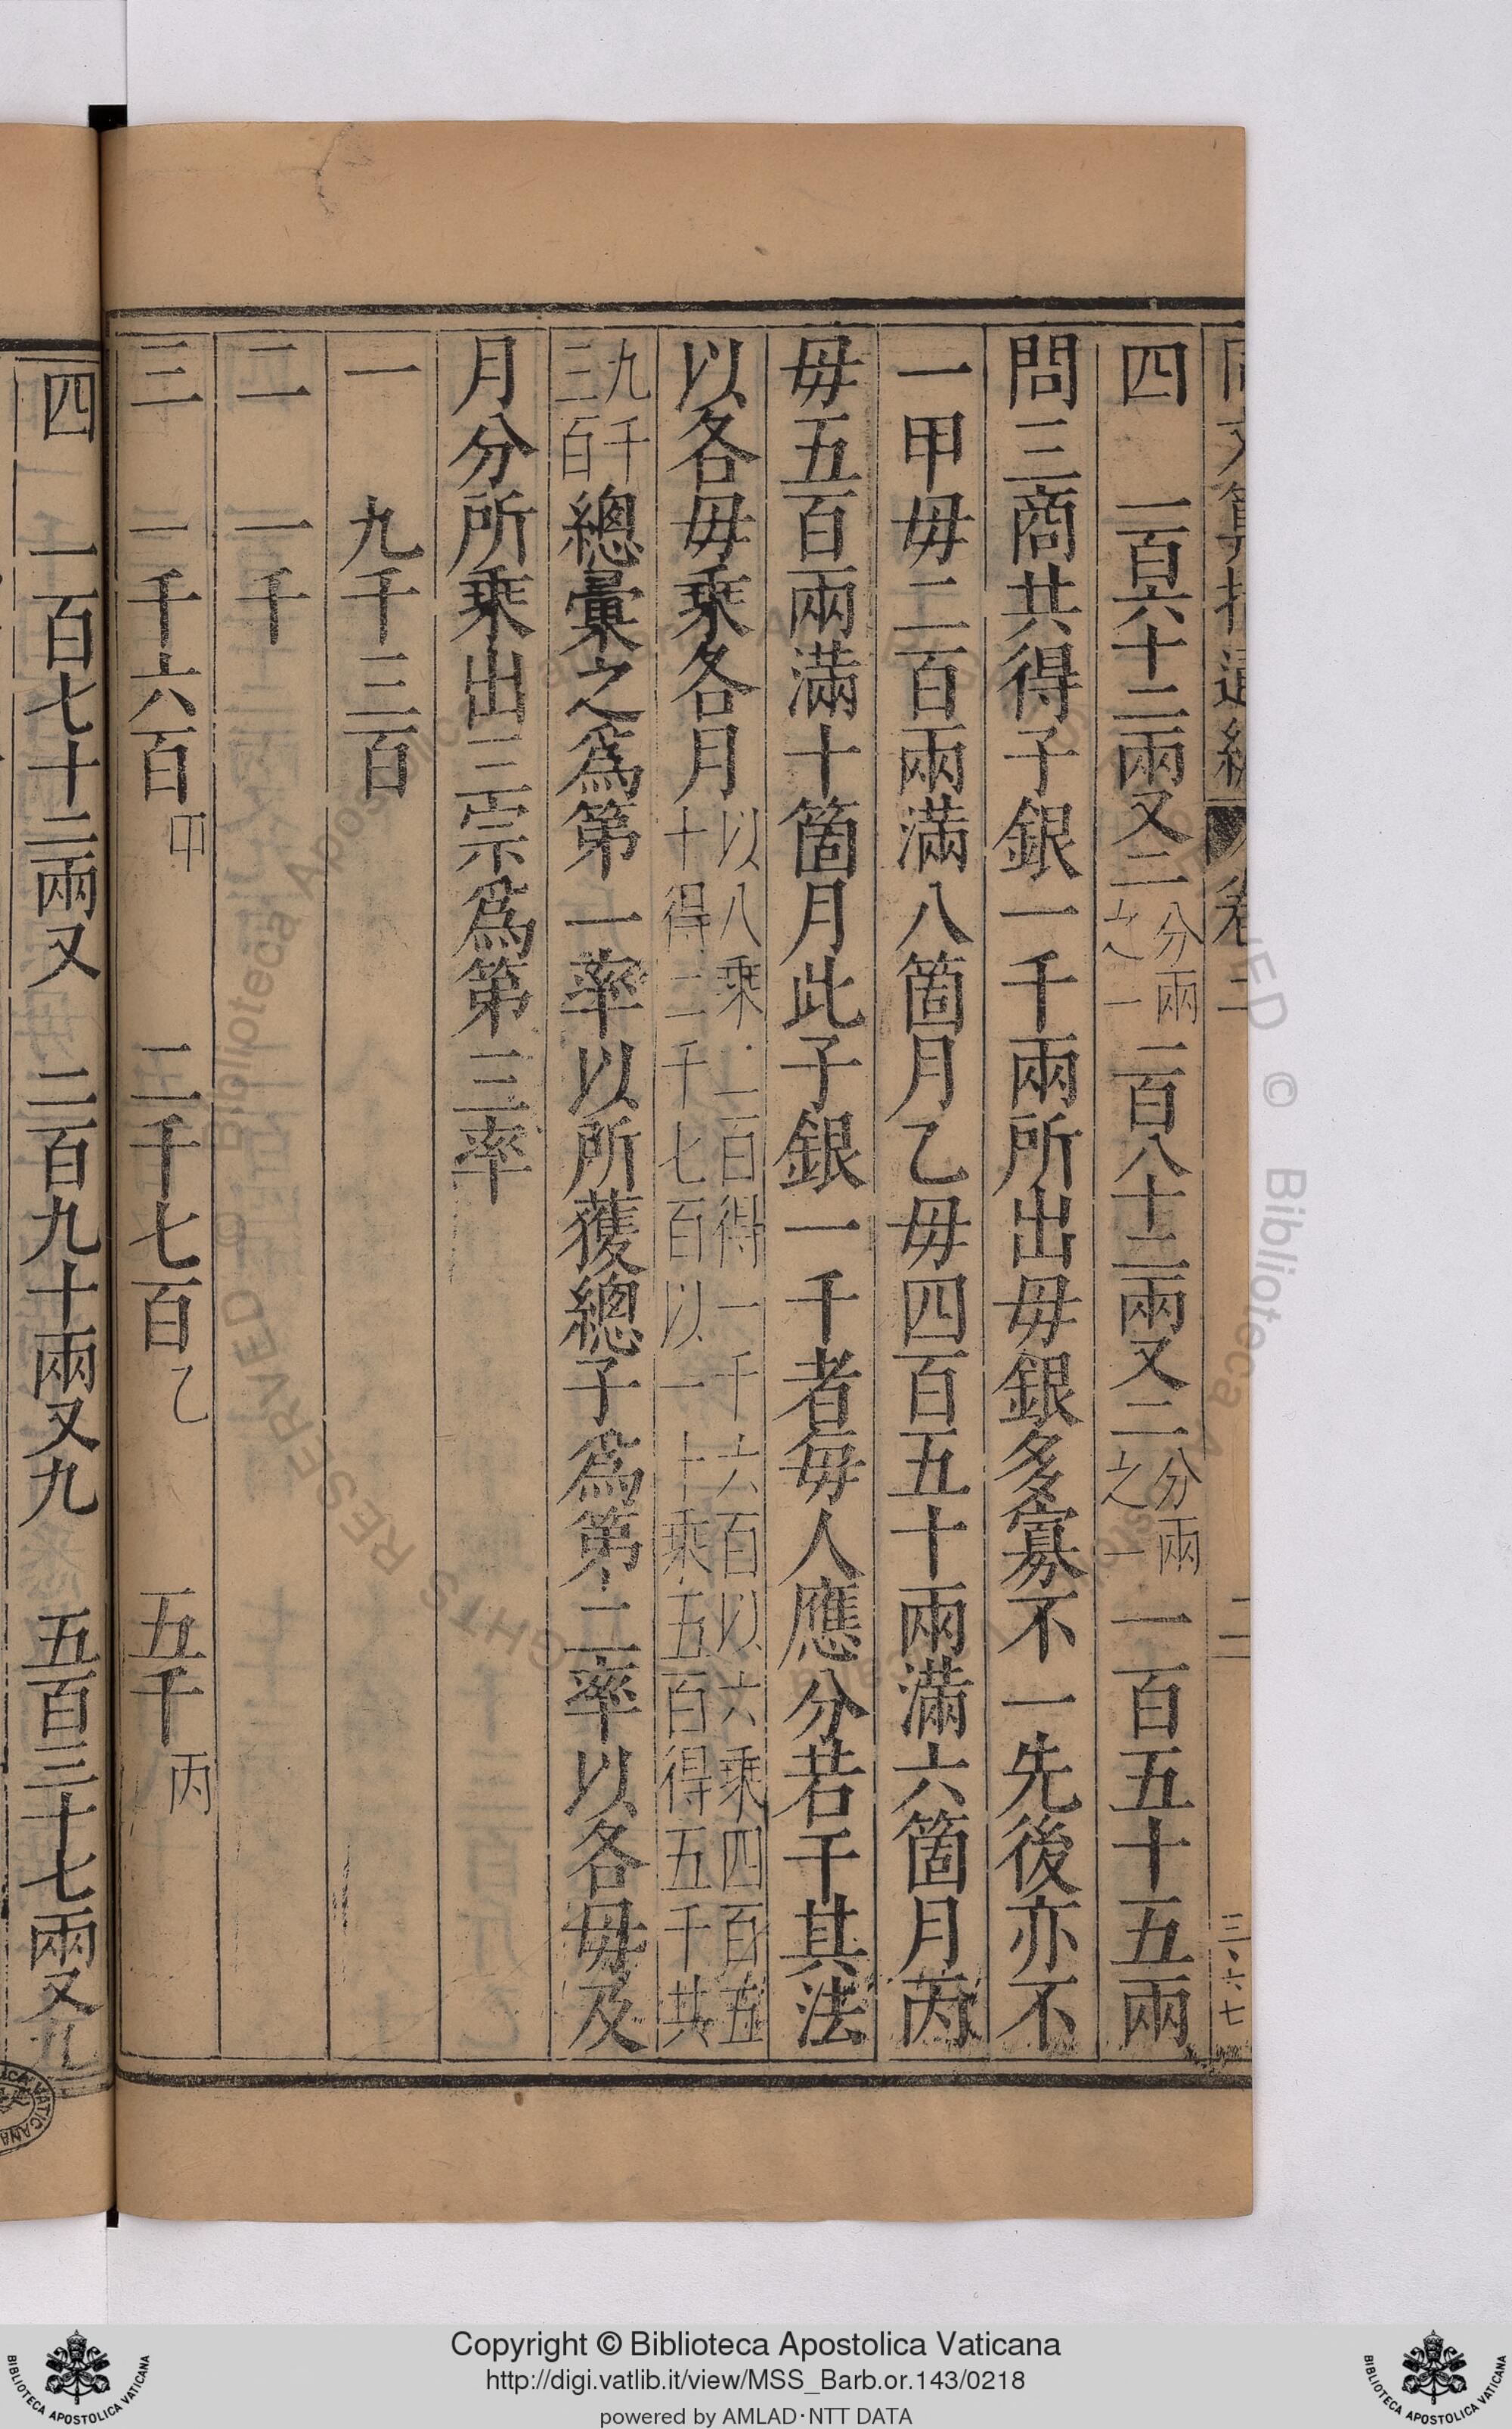 卷二 二 三、六七
四 一百六十二兩又二分兩之一 二百八十二兩又二分兩之一 一百五十五兩
問三商共得子銀一千兩所出毋銀多寡不一先後亦不
一甲毋二百兩滿八箇月乙毋四百五十兩滿六箇月丙
毋五百兩滿十箇月此子銀一千者毋人應分若干其法
以各毋乘各月以八乘二百得一千六百以六乘四百五十得二千七百以一十乘五百得五千共
九千三百總彙之爲第一率以所獲總子爲第二率以各毋及
月分所乘出三宗爲第三率
一 九千三百
二 一千
三 一千六百甲 二千七百乙 五千丙
四 一百七十二兩又 二百九十兩又九 五百三十七兩又九
Copyright © Biblioteca Apostolica Vaticana
http://digi.vatlib.it/view/MSS_Barb.or.143/0218
powered by AMLAD·NTT DATA